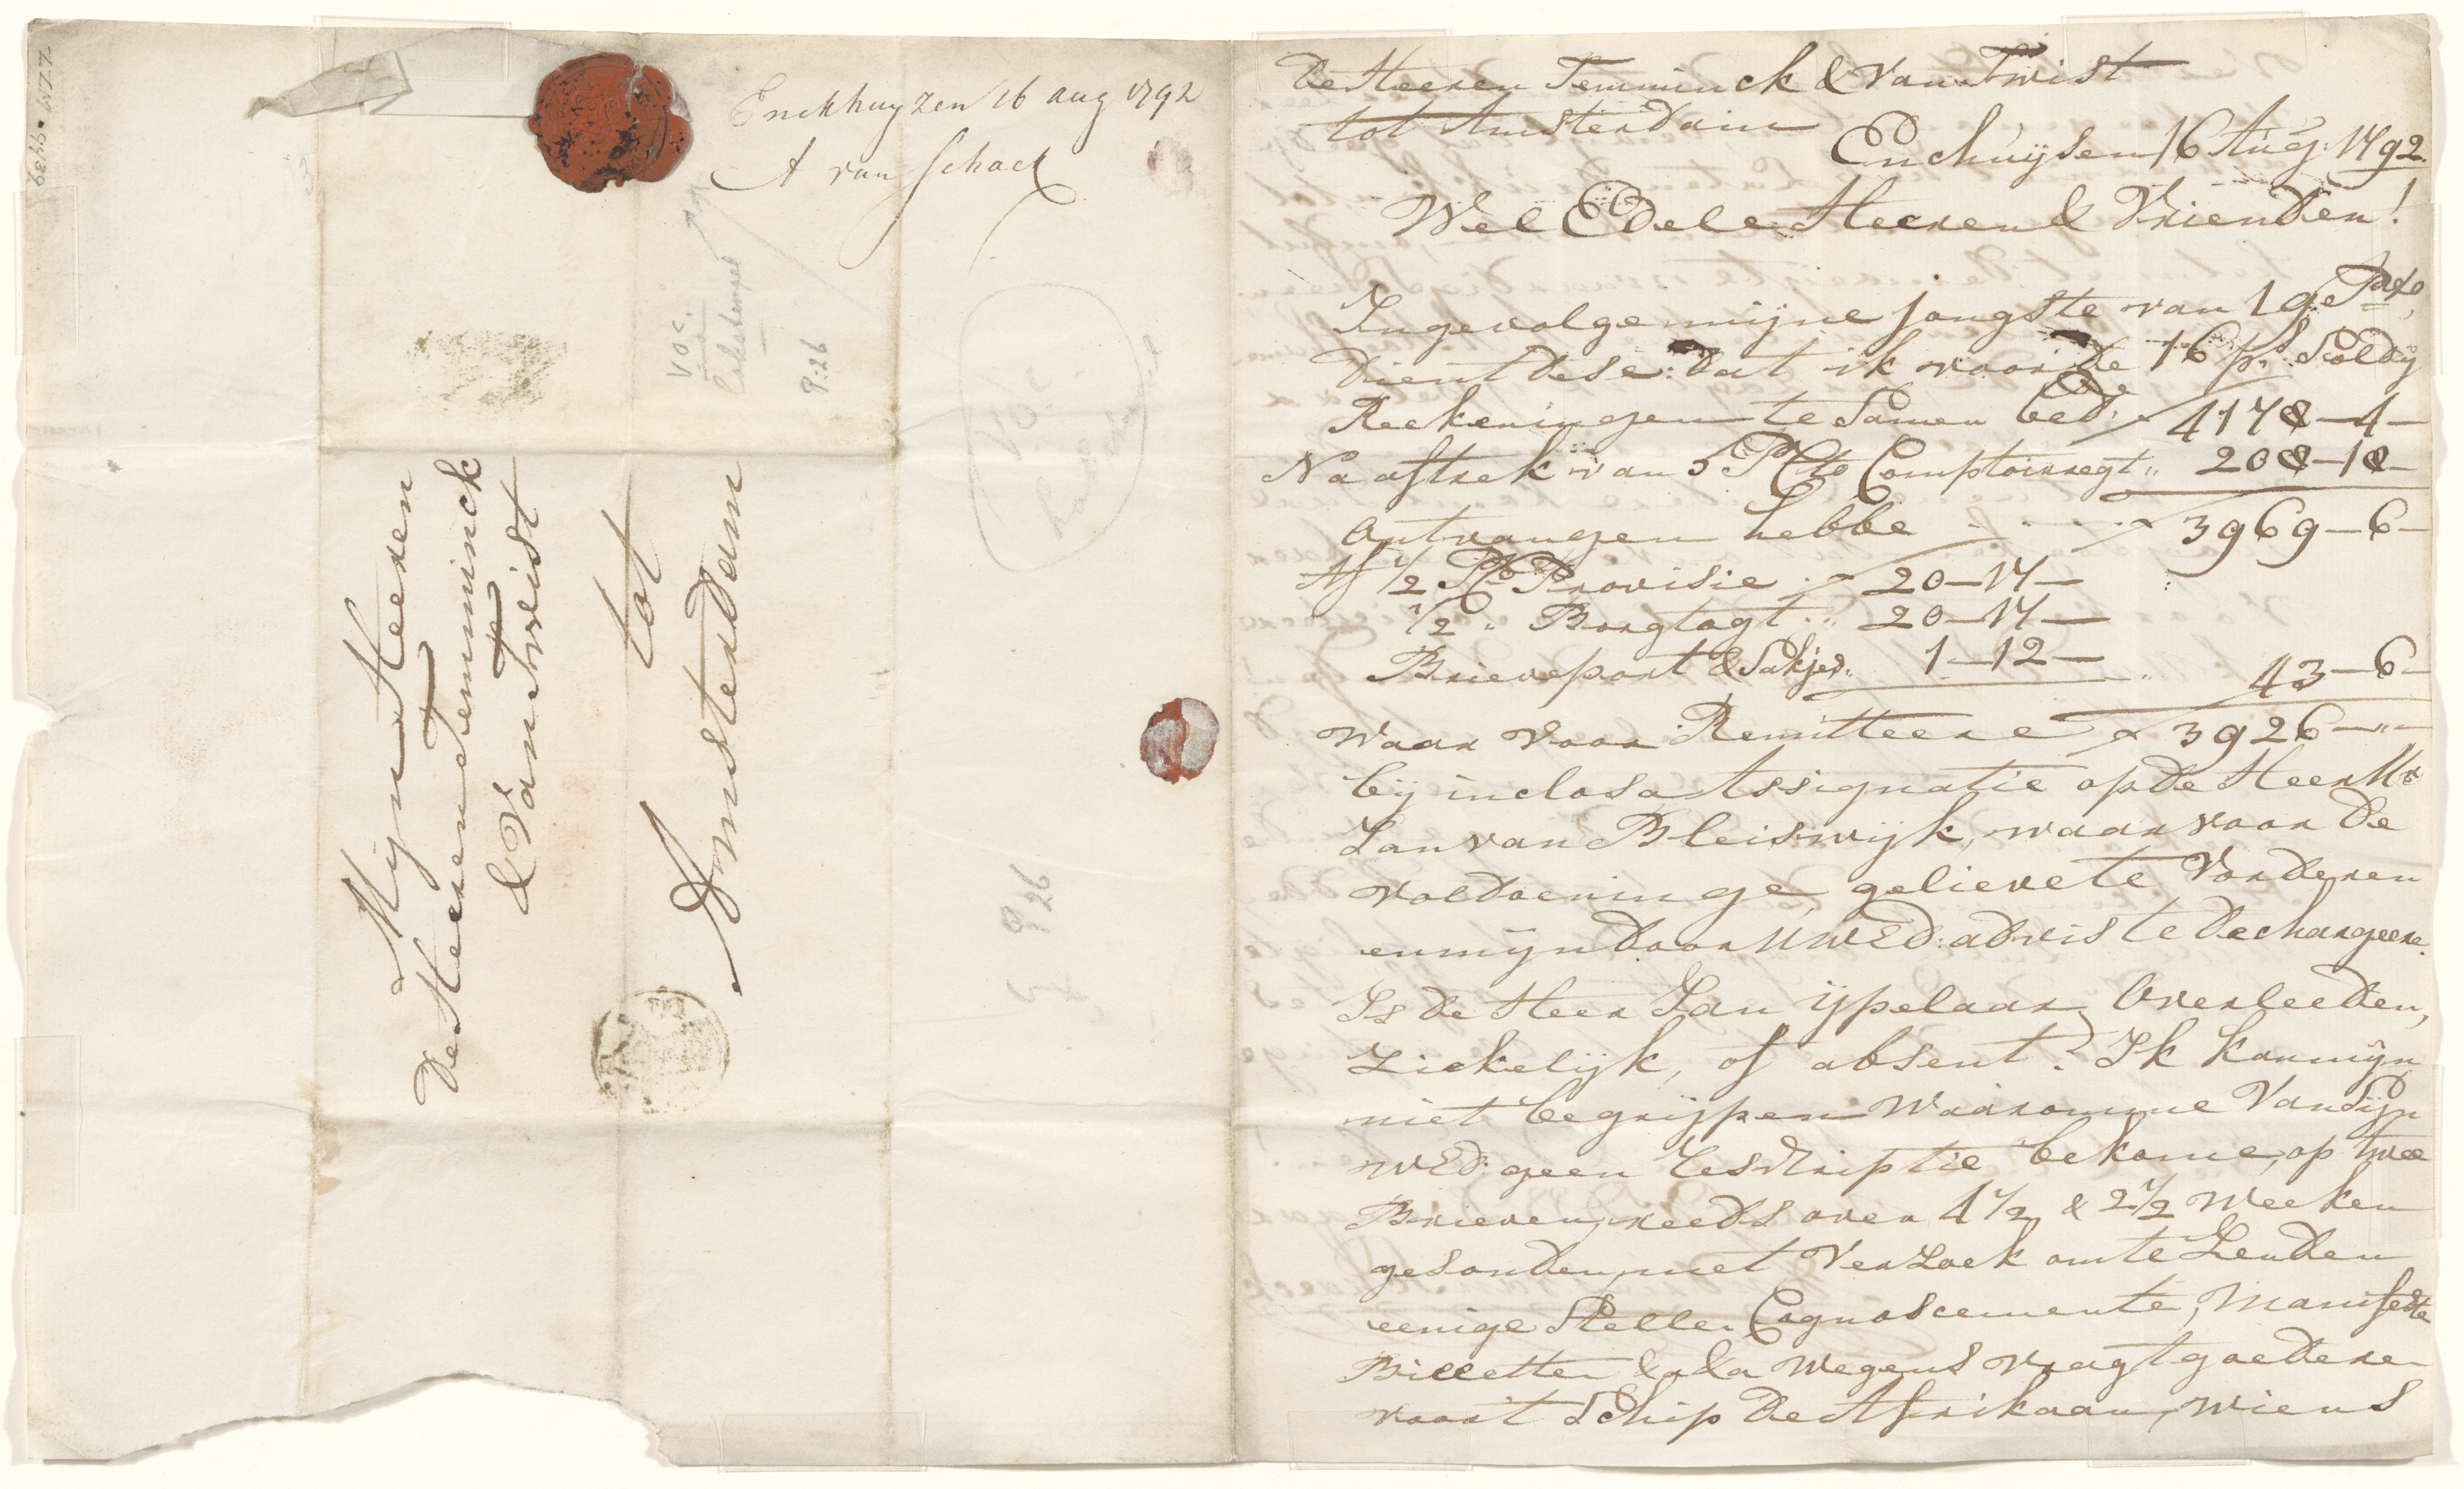 ZZM. 94439
Enckhuyzen 16 aug 1792
A van Schack
VOC.
9:26
VOC.
9 26
Mijn Heeren
De Heeren Temminck
& Van Twist
tot
Amsterdam
De Heeren Temminck & Van Twist
tot Amsterdam
Enchuijsen 16 Aug: 1792.
Wel Edele Heeren & Vrienden!
Ingevolge mijne jongste van 1ge Pass,
dient dese: dat ik voor de 16 ps. Soldij
Reekeningen te samen bed: ƒ 4178-4-
Na aftrek van 5 PCto Comptoirregt „ 208-18-
Ontvangen hebbe . . . . ƒ 3969-6-
Af 1/2 PCto Provisie . ƒ 20-17-
1/2 „ Borgtogt .„ 20-17-
Brieveport & Sakjes „ 1-12- „ 43-6-
waar voor Remitteere ƒ 3926-„-
bij inclosa Assignatie op de Heer Mr
Jan van Bleiswijk, waar voor de
voldoeninge, gelieve te Vorderen
en mijn door UWEd: advis te dechargeere.
Is de Heer Jan ijpelaar Overleeden,
Ziekelijk, of absent? Ik kan mijn
niet begrijpen Waaromme Van Sijn
WEd: geen Rescriptie bekome, op twee
Brieven, reeds over 4 1/2 & 2 1/2 Weeken
gesonden, met Verzoek om te Zenden
eenige Stelle Cognoscemente, Manifeste
Billetten &a &a Wegens vragtgoederen
voor 't Schip De Afrikaan, wiens